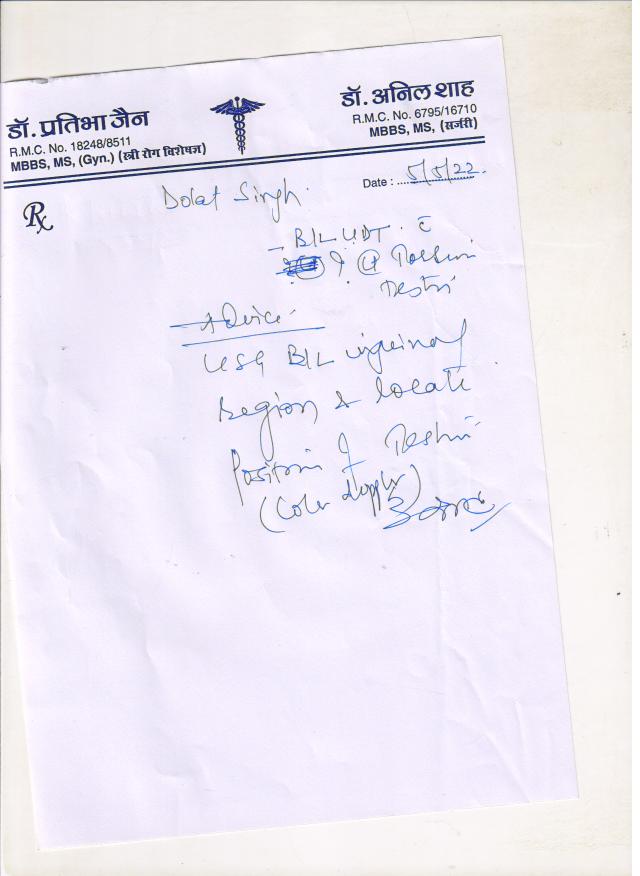 डॉ. प्रतिभा जैन
R.M.C. No. 18248/8511
MBBS, MS, (Gyn.) (स्त्री रोग विशेषज्ञ)
डॉ. अनिल शाह
R.M.C. No. 6795/16710
MBBS, MS, (सर्जरी)
Date : 5/5/22.
Rx
Dolat Singh.
- B/L UDT. c̄
Testis
Advice.
USG B/L inguinal
Region & locate
Position of Testis
(Color doppler)